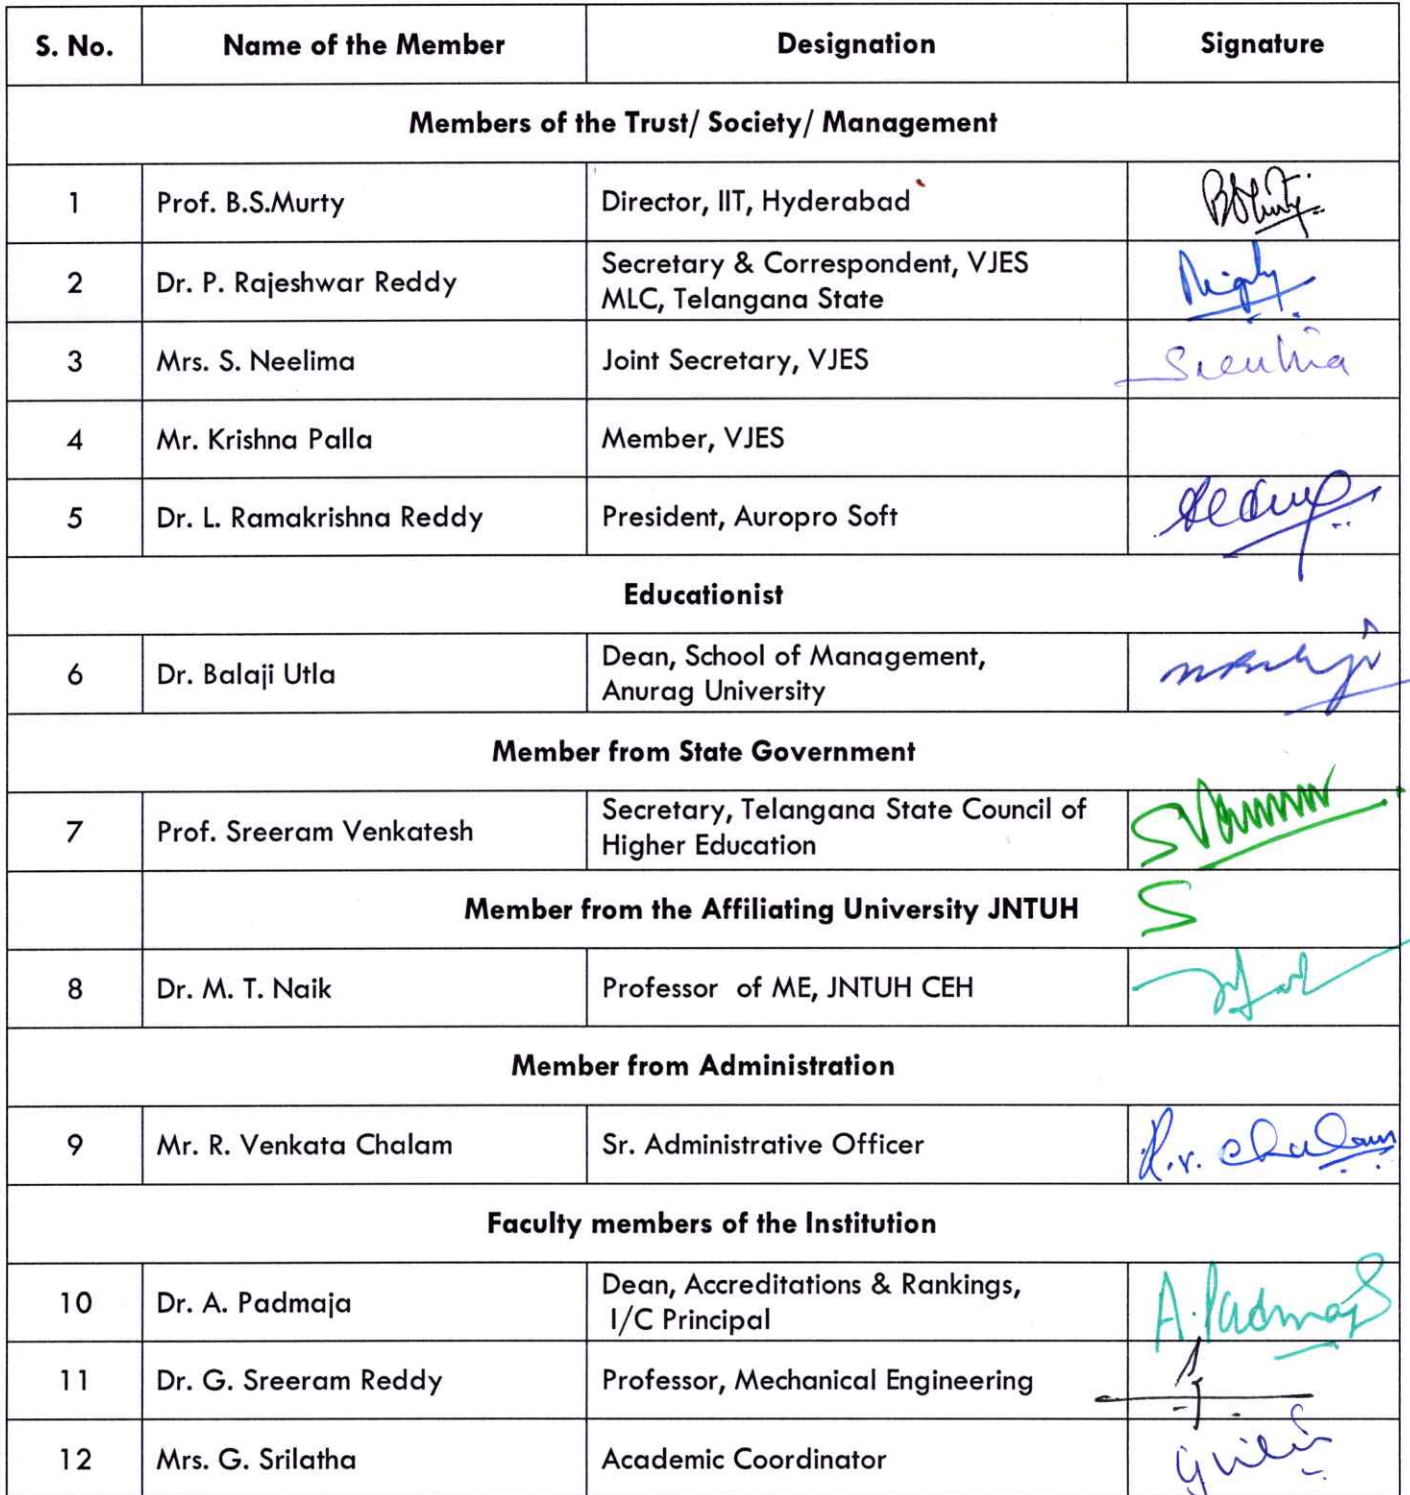 S. No. Name of the Member Designation Signature
Members of the Trust/ Society/ Management
1 Prof. B.S.Murty Director, IIT, Hyderabad
2 Dr. P. Rajeshwar Reddy Secretary & Correspondent, VJES
MLC, Telangana State
3 Mrs. S. Neelima Joint Secretary, VJES
4 Mr. Krishna Palla Member, VJES
5 Dr. L. Ramakrishna Reddy President, Auropro Soft
Educationist
6 Dr. Balaji Utla Dean, School of Management,
Anurag University
Member from State Government
7 Prof. Sreeram Venkatesh Secretary, Telangana State Council of
Higher Education
Member from the Affiliating University JNTUH
8 Dr. M. T. Naik Professor of ME, JNTUH CEH
Member from Administration
9 Mr. R. Venkata Chalam Sr. Administrative Officer R.V. Chalam
Faculty members of the Institution
10 Dr. A. Padmaja Dean, Accreditations & Rankings,
I/C Principal A. Padmaja
11 Dr. G. Sreeram Reddy Professor, Mechanical Engineering
12 Mrs. G. Srilatha Academic Coordinator